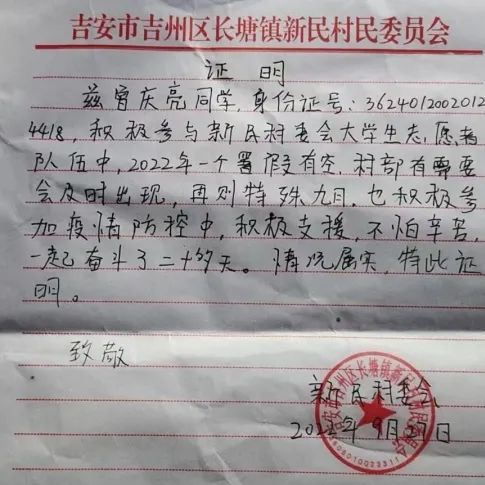 吉安市吉州区长塘镇新民村民委员会
证明
兹曾庆亮同学,身份证号:3624012002012
4418,积极参与新民村委会大学生志愿者
队伍中,2022年一个暑假没有空,村部有需要
会及时出现,再则特殊九月,也积极参
加疫情防控中,积极支援,不怕辛苦,
一起奋斗了二十多天。情况属实,特此证
明。
致敬
新民村委会
2022年9月27日
吉安市吉州区长塘镇新民村民委员会